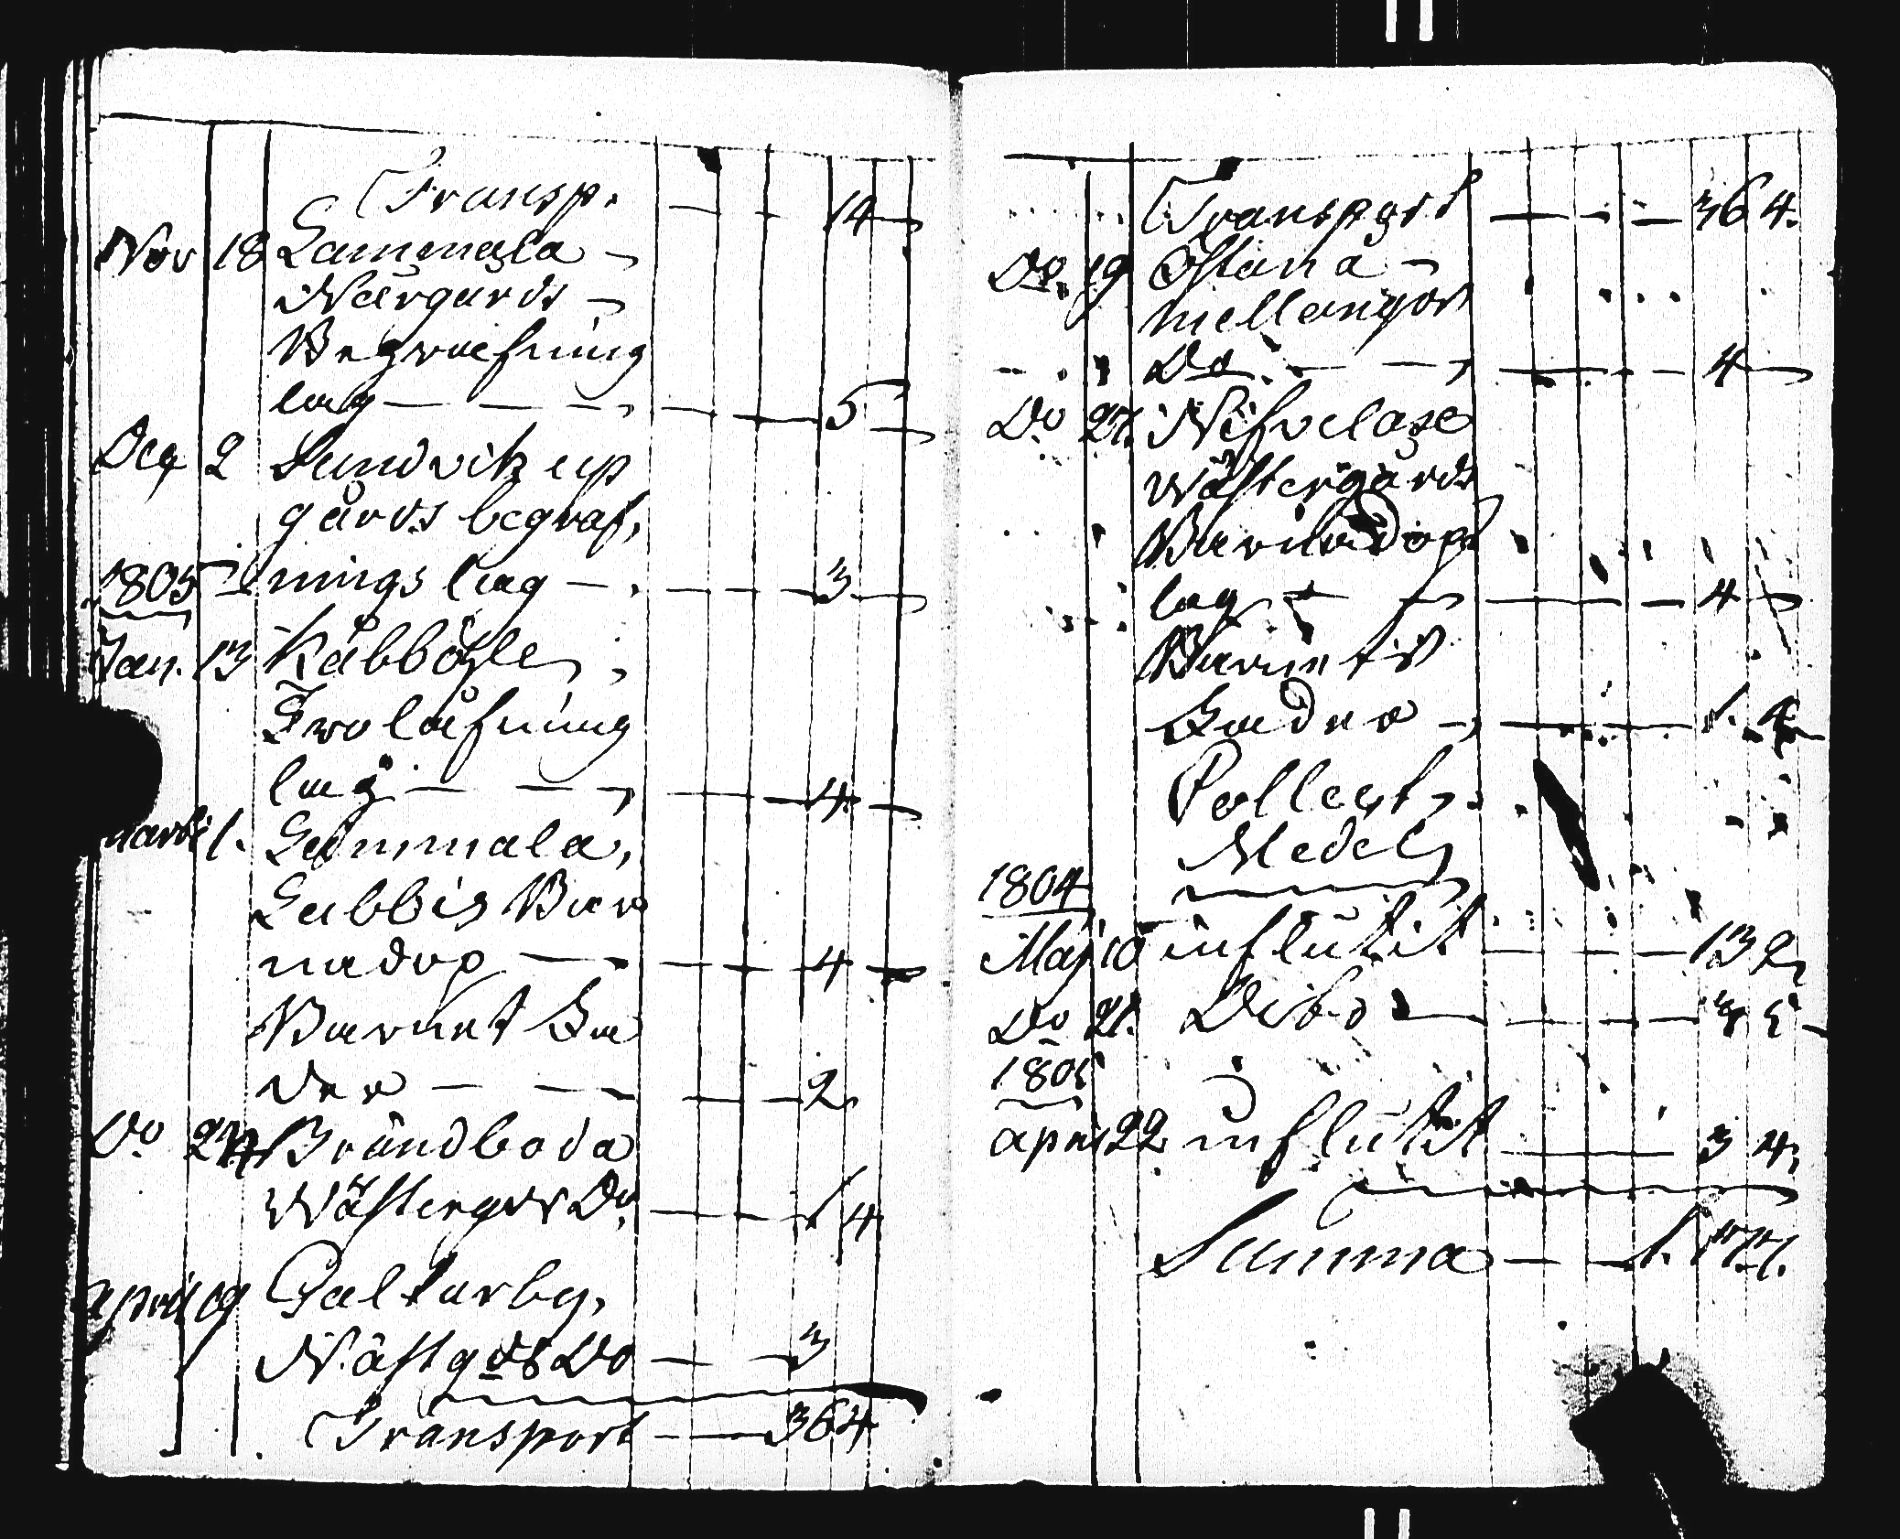 Transp. — — 14 —
Nov 18 Gammala —
Närgårds —
Begraefning
lag — — — 5 —
Dec 2 Sundvik up
gårds begraf,
1805 nings lag — — — 3 —
Jan. 13 Kåbböhle,
Trolåfning
lag — — — 4. —
Marti 1. Gammala,
Gabbis Bar
nadop — — 4 —
Barnet Ba
der — — — 2
Do 24 Brändboda
Wästergrds Do, — — 1 4
April 9 Galtarby,
Wästgds Do — — 3
Transport — 364
Transport — — — 36 4.
Do. 19 Östanå —
mellangår
Do — — — 4 —
Do 21.
Wästergårds
Barnadops
lag — — — 4 —
Barnets
Badra — — — 1. 4
Collect,
Medel,
1804
Maj 10 influtit — — 13 2,
Do 21. Dito — — 3 5 —
1805
April 22 influtit — 3 4,
Summa — —